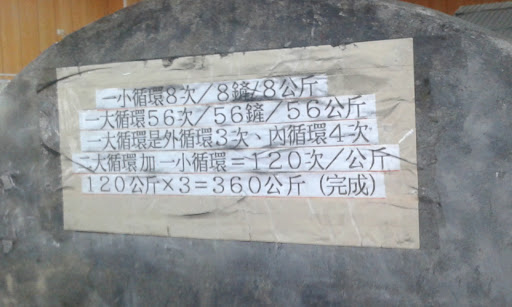 一小循環8次/8鏟/8公斤
一大循環56次/56鏟/56公斤
一大循環是外循環3次、內循環4次
二大循環加一小循環=120次/公斤
120公斤×3=360公斤(完成)